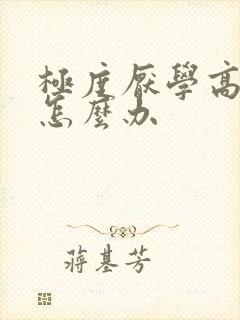 極度厭學高
怎麼办
蔣基芳